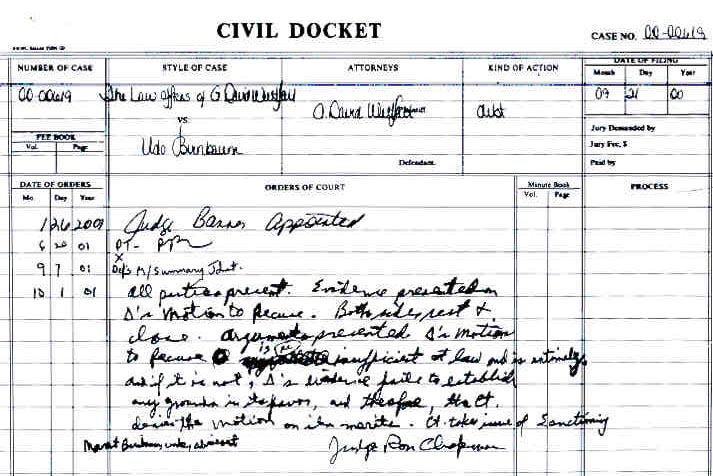 CIVIL DOCKET
CASE NO. 00-00619
NUMBER OF CASE
STYLE OF CASE
ATTORNEYS
KIND OF ACTION
DATE OF FILING
Month Day Year
00-00619
The Law Offices of G David Westfall
VS.
Udo Birnbaum
G. David Westfall
Defendant.
debt
09 21 00
Jury Demanded by
Jury Fee, $
Paid by
FEE BOOK
Vol. Page
DATE OF ORDERS
Mo. Day Year
ORDERS OF COURT
Minute Book
Vol. Page
PROCESS
1 26 2001 Judge Banner Appointed
6 20 01 PT-
9 7 01 Def's M/Summary Jdmt.
10 1 01 All parties present. Evidence presented on
Δ's Motion to Recuse. Both sides rest &
close. Arguments presented Δ's motion
to recuse is insufficient at law and is untimely
and if it is not, Δ's evidence fails to establish
any grounds in its favor, and therefore, the Ct.
denies the motion on its merits. Ct. takes issue of Sanctioning
Judge Ron Chapman
absent